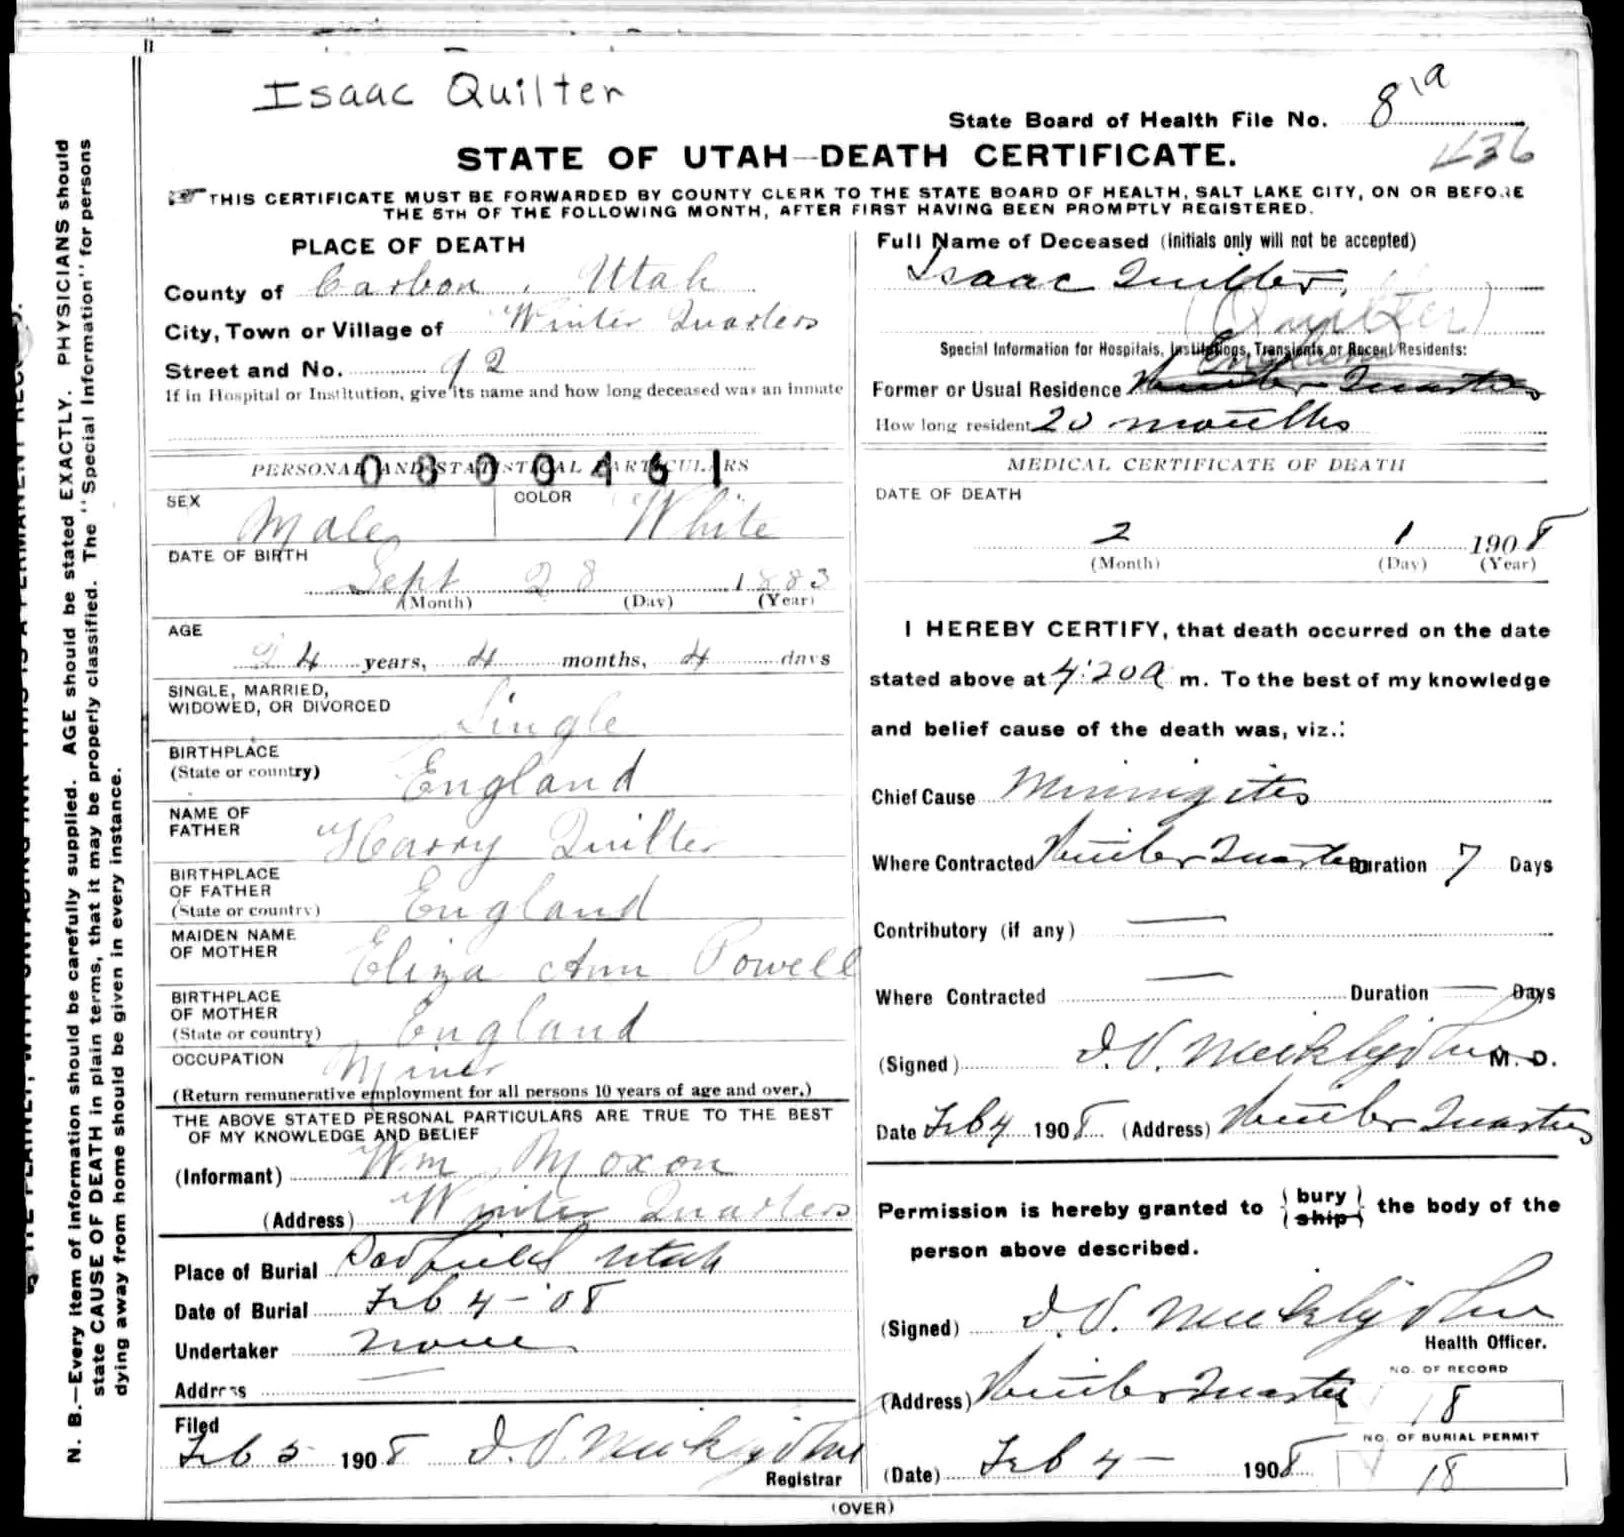 Isaac Quilter
State Board of Health File No. 81a
436
STATE OF UTAH—DEATH CERTIFICATE.
THIS CERTIFICATE MUST BE FORWARDED BY COUNTY CLERK TO THE STATE BOARD OF HEALTH, SALT LAKE CITY, ON OR BEFORE
THE 5TH OF THE FOLLOWING MONTH, AFTER FIRST HAVING BEEN PROMPTLY REGISTERED.
N. B.—Every item of information should be carefully supplied. AGE should be stated EXACTLY. PHYSICIANS should
state CAUSE OF DEATH in plain terms, that it may be properly classified. The "Special Information" for persons
dying away from home should be given in every instance.
PLACE OF DEATH
County of Carbon, Utah
City, Town or Village of Winter Quarters
Street and No. 92
If in Hospital or Institution, give its name and how long deceased was an inmate
PERSONAL AND STATISTICAL PARTICULARS
0800461
SEX Male COLOR White
DATE OF BIRTH
Sept 28 1883
(Month) (Day) (Year)
AGE
24 years, 4 months, 4 days
SINGLE, MARRIED,
WIDOWED, OR DIVORCED Single
BIRTHPLACE
(State or country) England
NAME OF
FATHER Harry Quilter
BIRTHPLACE
OF FATHER
(State or country) England
MAIDEN NAME
OF MOTHER Eliza Ann Powell
BIRTHPLACE
OF MOTHER
(State or country) England
OCCUPATION Miner
(Return remunerative employment for all persons 10 years of age and over.)
THE ABOVE STATED PERSONAL PARTICULARS ARE TRUE TO THE BEST
OF MY KNOWLEDGE AND BELIEF
(Informant) Wm Moxon
(Address) Winter Quarters
Place of Burial Scofield Utah
Date of Burial Feb 4-'08
Undertaker none
Address —
Filed
Feb 5 1908
Registrar
Full Name of Deceased (Initials only will not be accepted)
Isaac Quilter.
(Quilter)
Special Information for Hospitals, Institutions, Transients or Recent Residents:
England
Former or Usual Residence Winter Quarters
How long resident 20 months
MEDICAL CERTIFICATE OF DEATH
DATE OF DEATH
2 1 1908
(Month) (Day) (Year)
I HEREBY CERTIFY, that death occurred on the date
stated above at 4:20 a m. To the best of my knowledge
and belief cause of the death was, viz.:
Chief Cause Miningites
Where Contracted Winter Quarters Duration 7 Days
Contributory (if any) —
Where Contracted — Duration — Days
(Signed) M. D.
Date Feb 4 1908 (Address) Winter Quarters
Permission is hereby granted to (bury) (ship) the body of the
person above described.
(Signed)
Health Officer.
(Address) Winter Quarters
NO. OF RECORD
18
NO. OF BURIAL PERMIT
18
(Date) Feb 4 — 1908
(OVER)